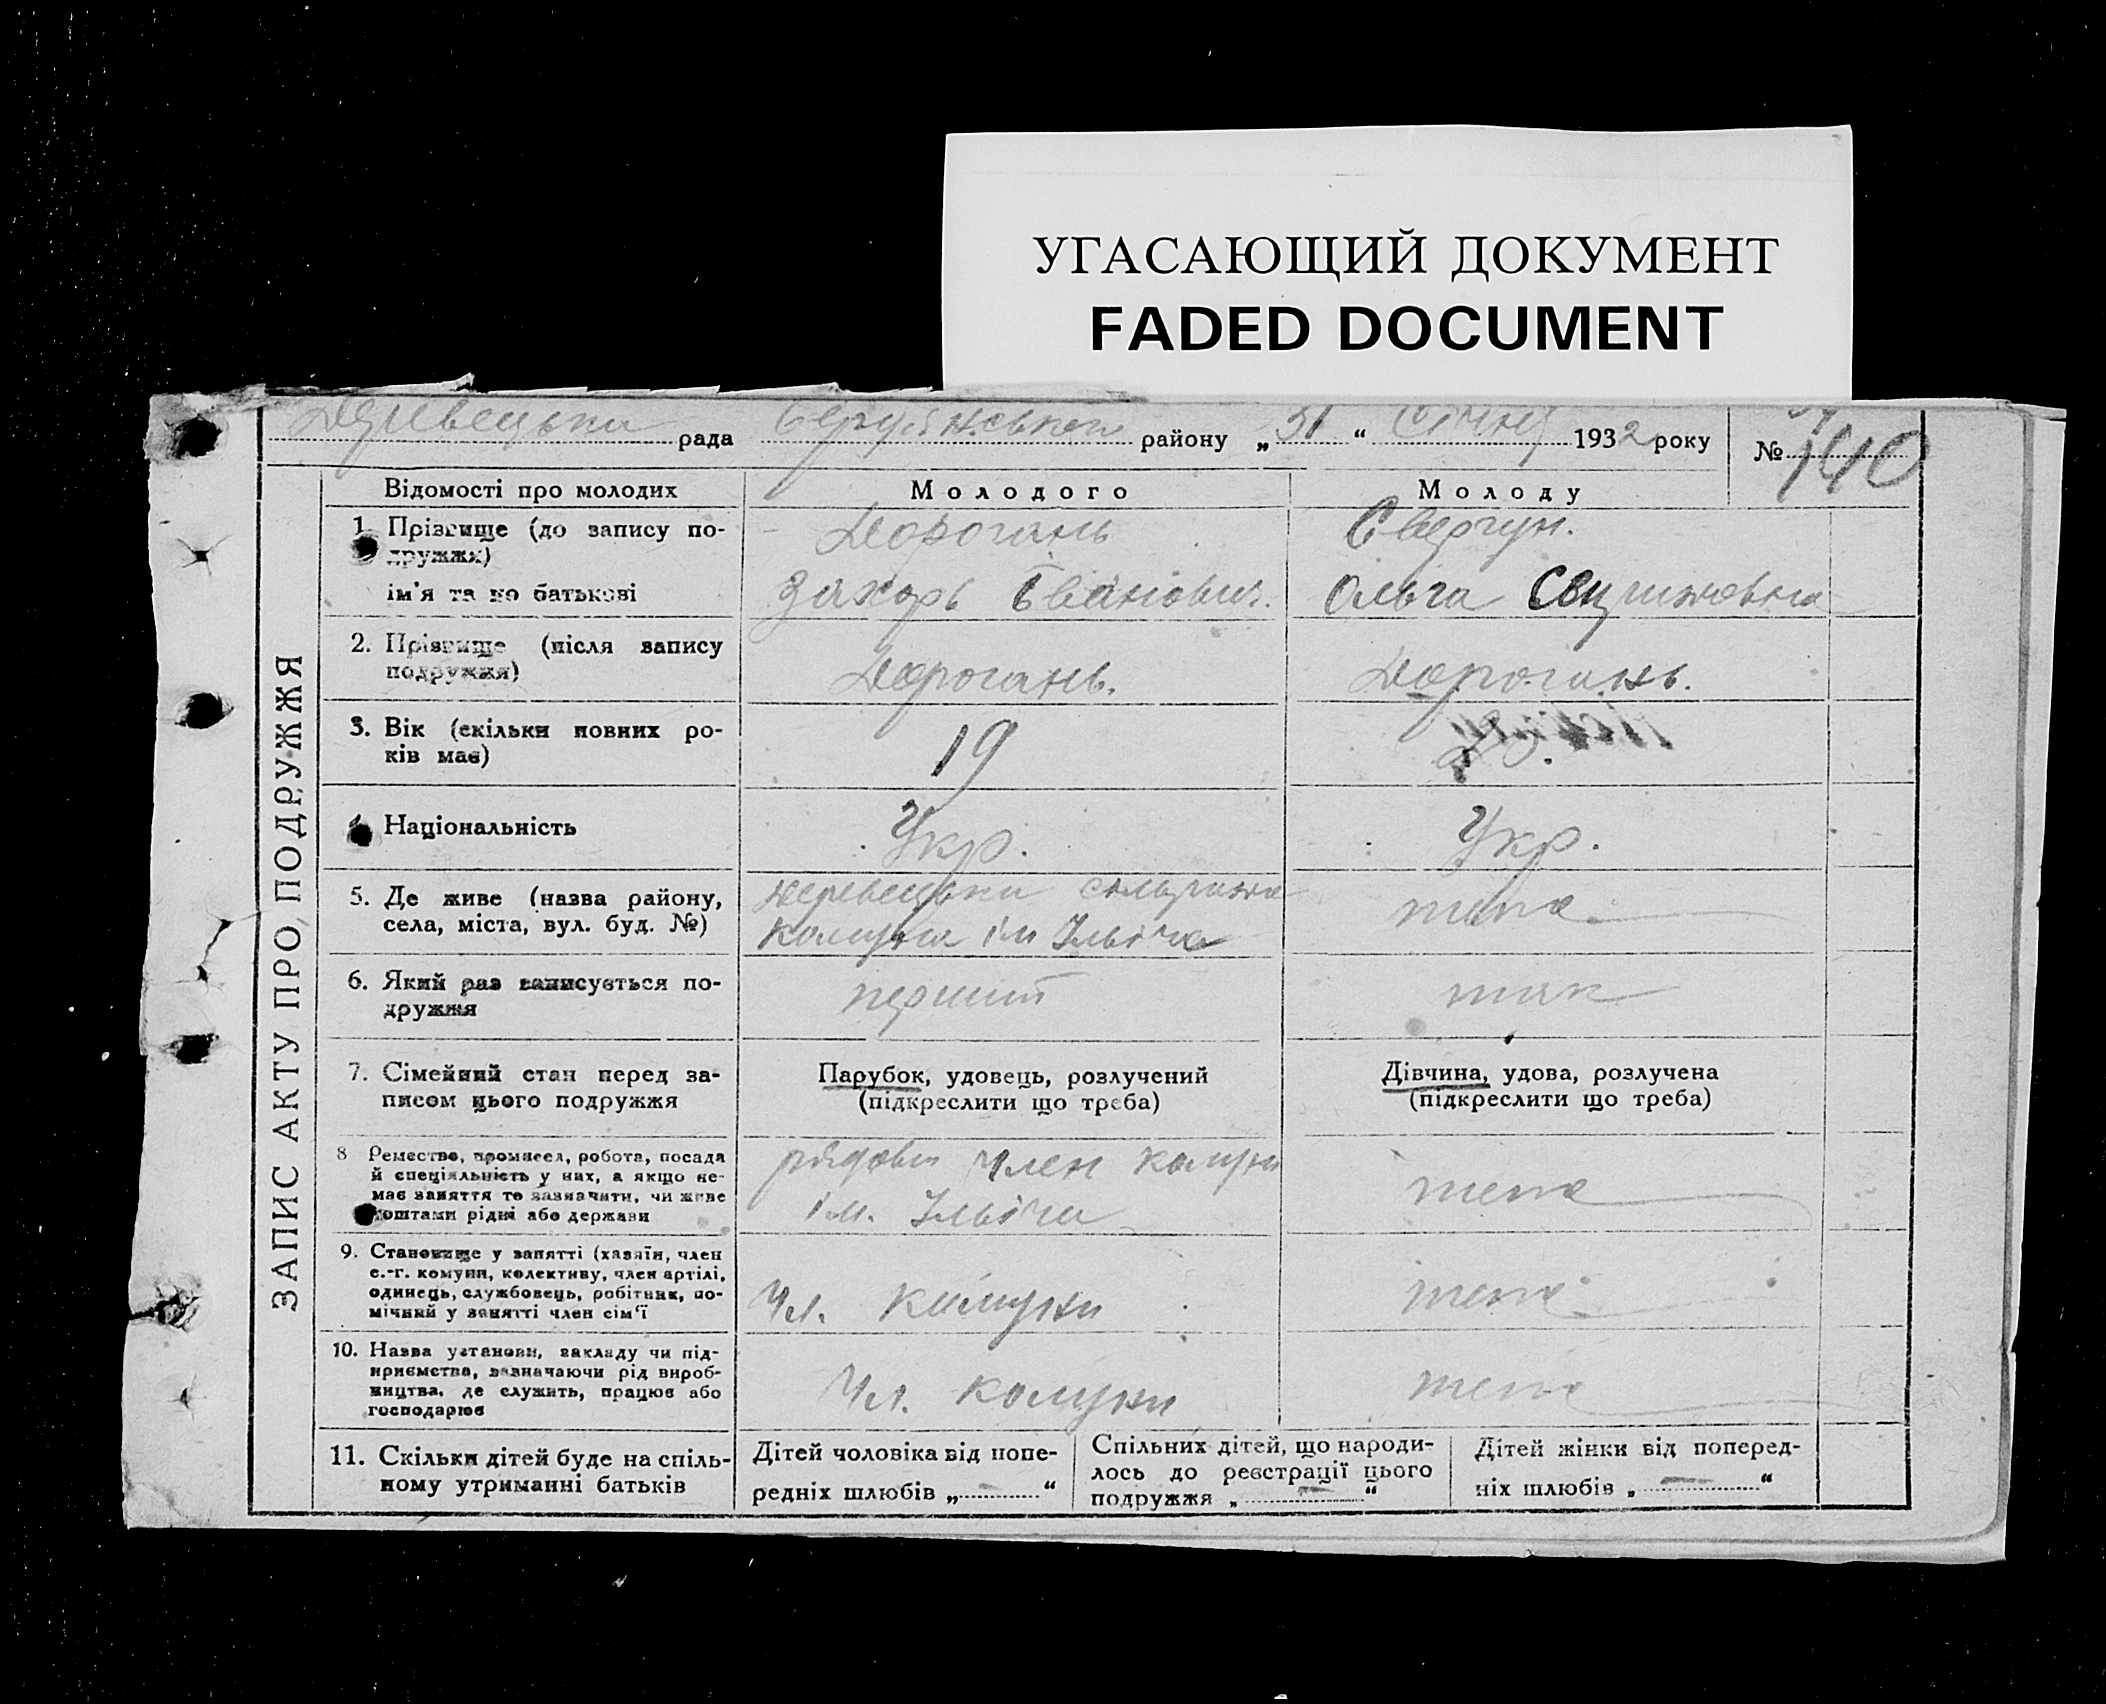 УГАСАЮЩИЙ ДОКУМЕНТ
FADED DOCUMENT
рада району „31“ Січня 1932 року № 140
ЗАПИС АКТУ ПРО ПОДРУЖЖЯ
Відомості про молодих
Молодого
Молоду
1. Прізвище (до запису по-
дружжя)
ім'я та по батькові
Дорогань
Захарь Іванович.
Свергун.
Ольга
2. Прізвище (після запису
подружжя)
Дорогань.
Дорогань.
3. Вік (скільки повних ро-
ків має)
19
20.
4. Національність
Укр.
Укр.
5. Де живе (назва району,
села, міста, вул. буд. №)
комуна ім Ілліча
тепе
6. Який раз записується по-
дружжя
перший
так
7. Сімейний стан перед за-
писом цього подружжя
Парубок, удовець, розлучений
(підкреслити що треба)
Дівчина, удова, розлучена
(підкреслити що треба)
8 Ремество, промисел, робота, посада
й спеціяльність у них, а якщо не-
має заняття то зазначити, чи живе
коштами рідні або держави
рядови член комуни
ім. Ілліча
тепе
9. Становище у занятті (хазяїн, член
с.-г. комуни, колективу, член артілі,
одинець, службовець, робітник, по-
мічний у занятті член сім'ї
Чл. комуни
тепе
10. Назва установи, закладу чи під-
приємства, зазначаючи рід вироб-
ництва, де служить, працює або
господарює
Чл. комуни
тепе
11. Скільки дітей буде на спіль-
ному утриманні батьків
Дітей чоловіка від попе-
редніх шлюбів „ — “
Спільних дітей, що народи-
лось до реєстрації цього
подружжя „ — “
Дітей жінки від поперед-
ніх шлюбів „ — “